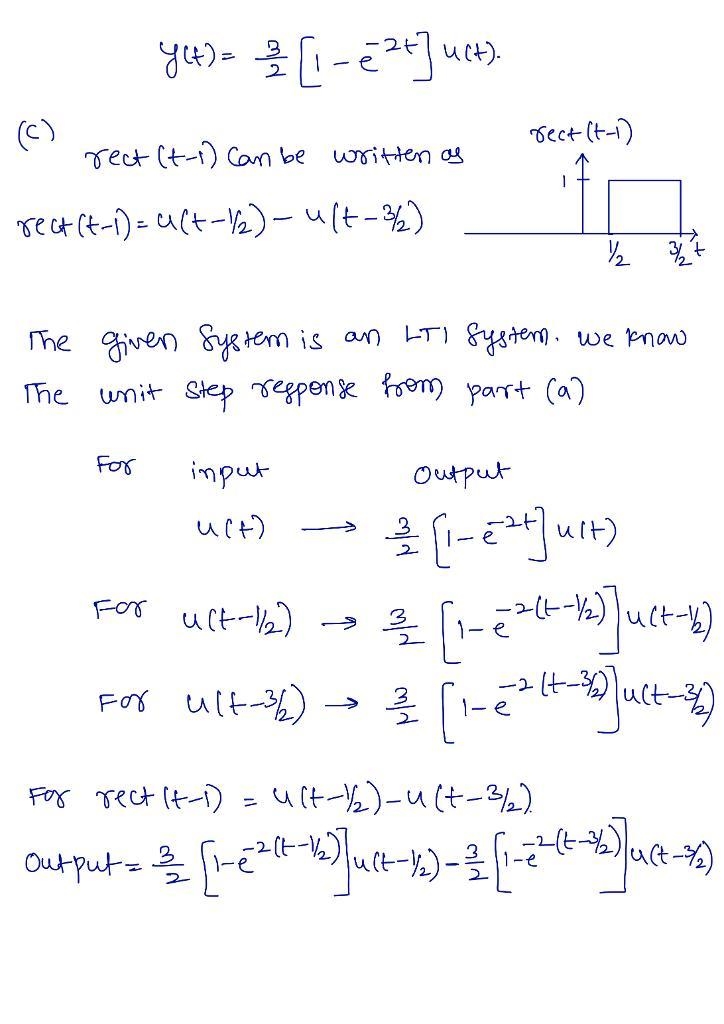 y(t) = 3/2 [1 - e^-2t] u(t).
(c)
rect(t-1) can be written as
rect(t-1)
rect(t-1) = u(t-1/2) - u(t-3/2)
1
1/2 3/2 t
The given system is an LTI system. we know
The unit step response from part (a)
For input Output
u(t) → 3/2 [1 - e^-2t] u(t)
For u(t-1/2) → 3/2 [1 - e^-2(t-1/2)] u(t-1/2)
For u(t-3/2) → 3/2 [1 - e^-2(t-3/2)] u(t-3/2)
For rect(t-1) = u(t-1/2) - u(t-3/2).
Output = 3/2 [1 - e^-2(t-1/2)] u(t-1/2) - 3/2 [1 - e^-2(t-3/2)] u(t-3/2)